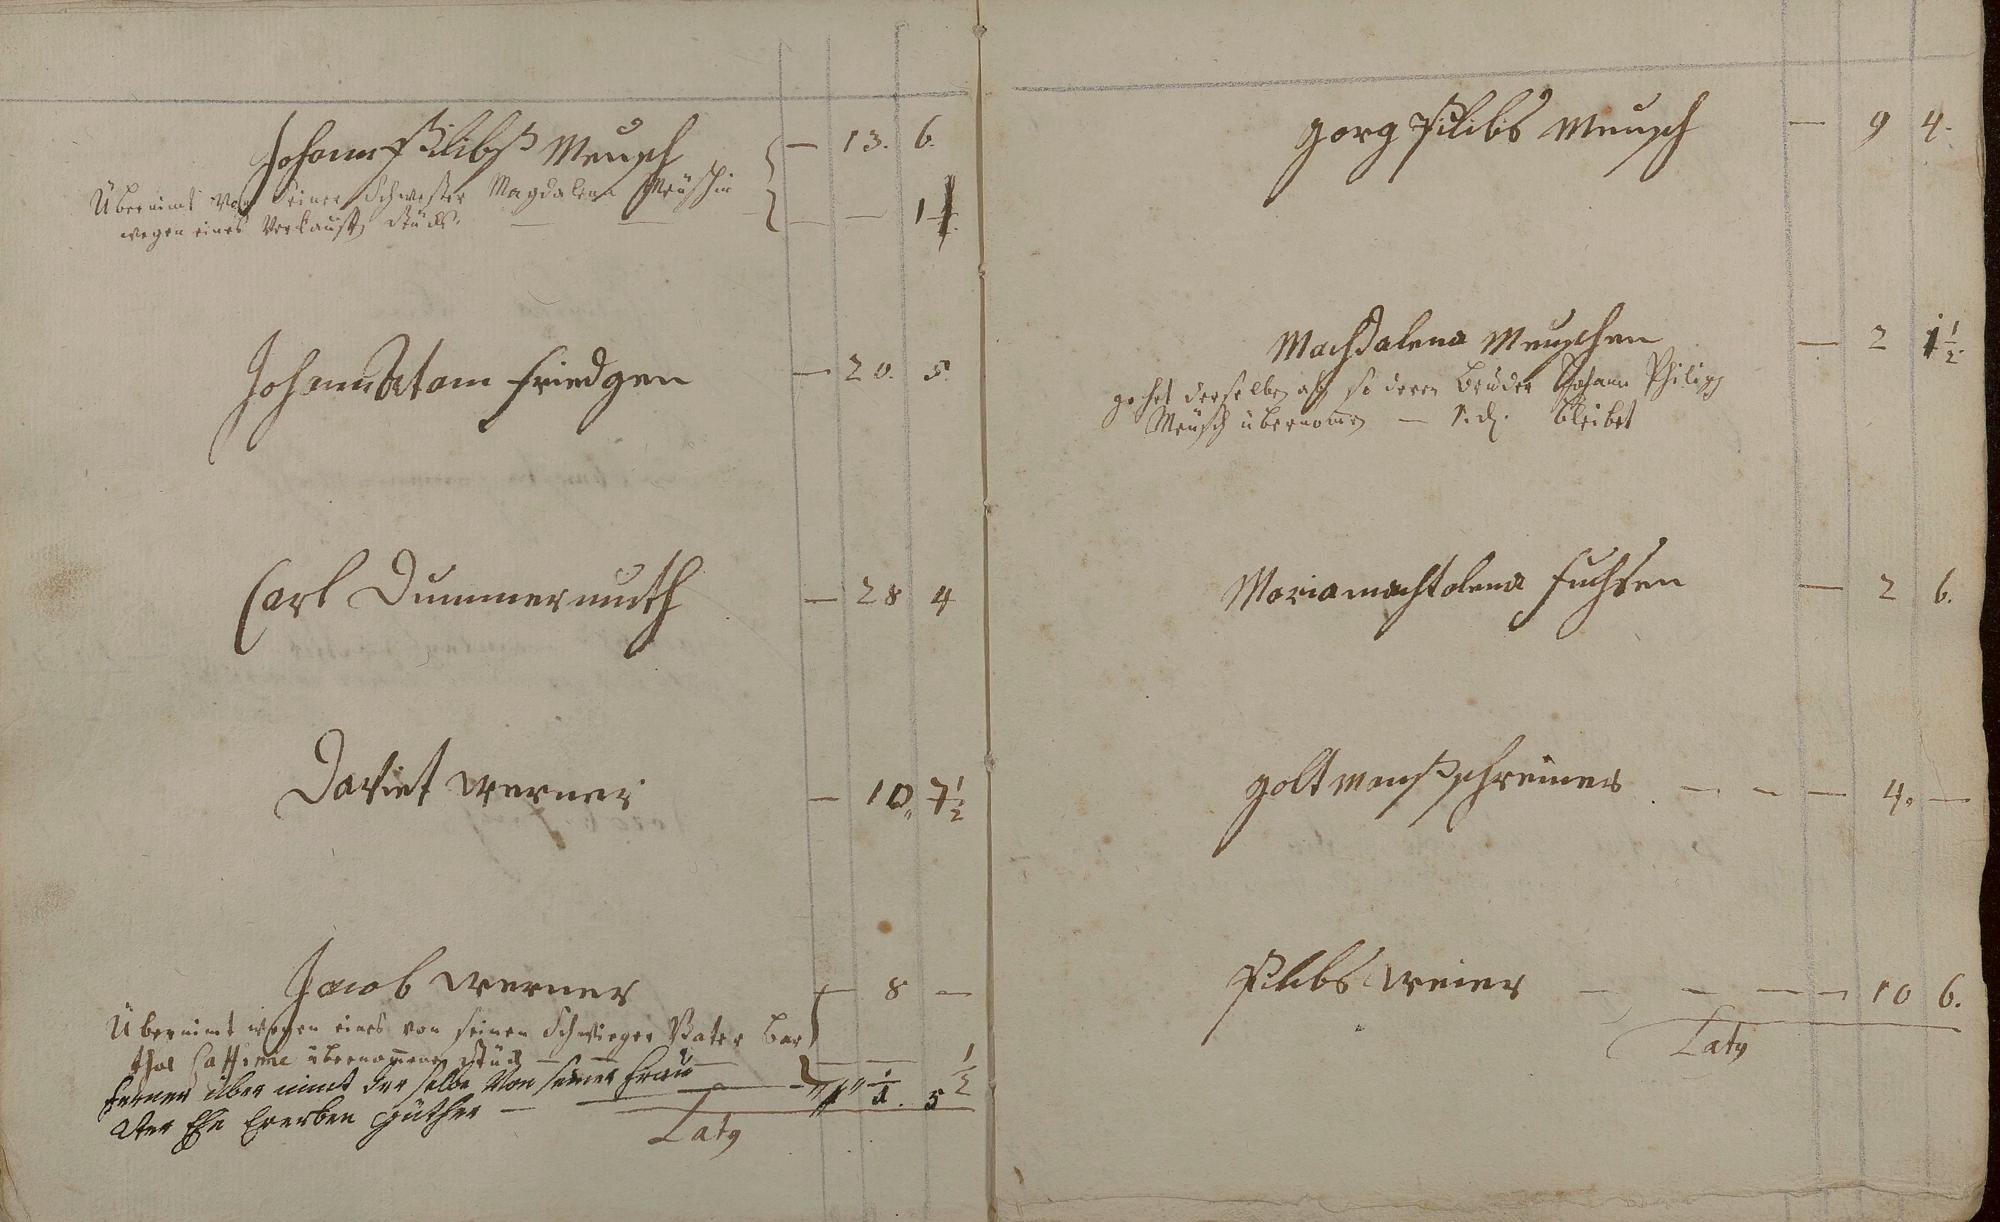 Johann Philibs Meusch — 13. 6.
Übernimt von seiner Schwester Magdalena Meuschin
wegen eines verkauften Stücks. — — — — 1
Johann Atam Friedgen — 20. 5.
Carl Dummermuth — 28 4
Daviet Werner — 10 7 1/2
Jacob Werner — 8 —
Übernimt wegen eines von seinen Schwieger Vater Bar
thol übernommenen Stück — — 1/2
Ferner übernimt der selbe Von seiner Frau
Erster Ehe Ererben güther — 1. 5
Latg
gorg Philibs Meusch — 9 4.
Machdalena Meuschen — 2 1 1/2
gehet derselben ab so deren Bruder Johann Philipp
Meusch übernomen — 1. d. bleibet
Mariamachtalena Fuchsen — 2 6.
golt schreiner — — — 4. —
Philibs Weier — — — — 10 6.
Latg